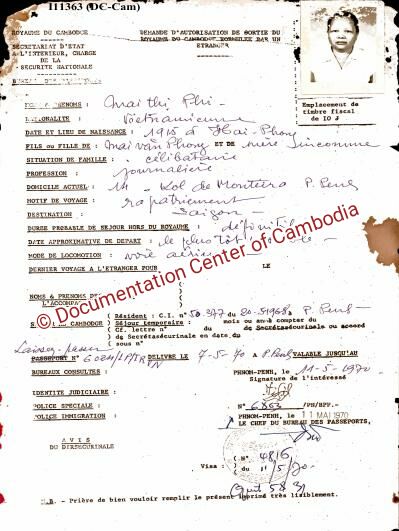 I11363 (DC-Cam)
ROYAUME DU CAMBODGE
SECRETARIAT D'ETAT
A L'INTERIEUR, CHARGE
DE LA
SECURITE NATIONALE
DEMANDE D'AUTORISATION DE SORTIE DU
ROYAUME DU CAMBODGE FORMULEE PAR UN
ETRANGER
Emplacement de
timbre fiscal
de 10 J
PRENOMS : Mai thi Phi -
NATIONALITE : Vietnamienne
DATE ET LIEU DE NAISSANCE : 1915 à Hai-Phong
FILS ou FILLE DE : Mai van Phong ET DE mère inconnue
SITUATION DE FAMILLE : célibataire
PROFESSION : journalière
DOMICILE ACTUEL : 14 Kol de Monteiro P. Penh
MOTIF DE VOYAGE : rapatriement
DESTINATION : Saigon -
DUREE PROBABLE DE SEJOUR HORS DU ROYAUME : définitif
DATE APPROXIMATIVE DE DEPART : le plus tôt
MODE DE LOCOMOTION : voie
DERNIER VOYAGE A L'ETRANGER POUR LE
NOMS & PRENOMS
L'ACCOMPA
© Documentation Center of Cambodia
( Résident : C.I. n° 50.377 du P. Penh
CAMBODGE ( Séjour temporaire : mois ou an à compter du
( Cf. lettre n° du de Secrétasécurinale ou accord
( de Secrétasécurinale en date du
( sous n°
Laissez-passer
PASSEPORT N° DELIVRE LE 7-5-70 à P. Penh VALABLE JUSQU'AU
BUREAUX CONSULTES :
PHNOM-PENH, le 11-5-1970
Signature de l'intéressé
IDENTITE JUDICIAIRE :
POLICE SPECIALE :
POLICE IMMIGRATION :
N° 6863 /PN/BPP.-
PHNOM-PENH, le 11 MAI 1970
LE CHEF DU BUREAU DES PASSEPORTS,
AVIS
DU DIRSECURINALE
Visa : ( N° 4816
( du 11 5/70 -
N.B. - Prière de bien vouloir remplir le présent imprimé très lisiblement.